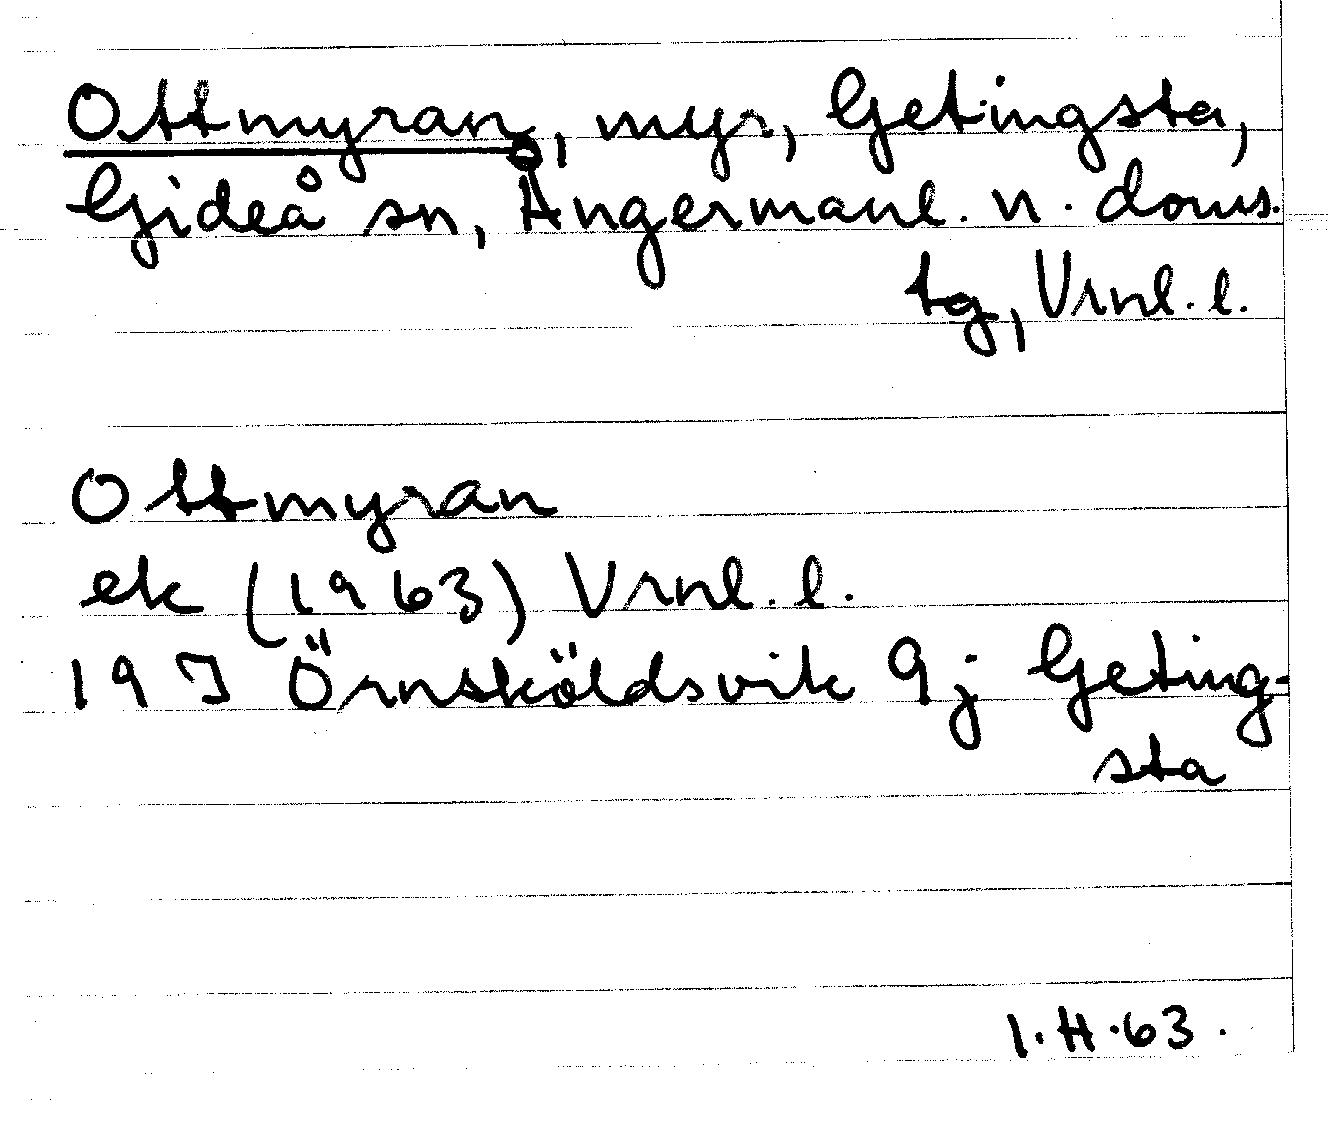 Ottmyran, myr, Getingsta,
Gideå sn, Ångermanl. n. doms.
tg, Vrnl. l.
Ottmyran
ek (1963) Vrnl. l.
19 J Örnsköldsvik 9j Geting-
sta
I.H.63.